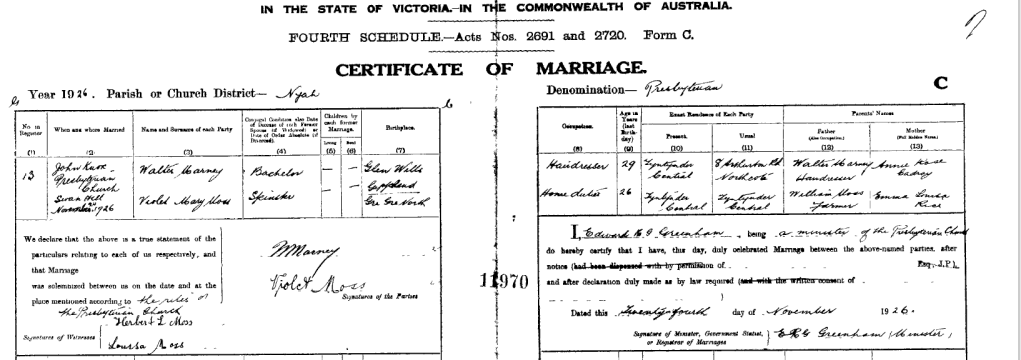 IN THE STATE OF VICTORIA.—IN THE COMMONWEALTH OF AUSTRALIA.
FOURTH SCHEDULE.—Acts Nos. 2691 and 2720. Form C.
CERTIFICATE OF MARRIAGE.
Year 1926. Parish or Church District— Nyah
Denomination— Presbyterian
C
No. in Register
When and where Married
Name and Surname of each Party
Conjugal Condition
Children by each former Marriage.
Living
Dead
Birthplace.
(1) (2) (3) (4) (5) (6) (7)
Occupation.
Age in Years (last Birthday)
Exact Residence of Each Party
Present.
Usual
Parents' Names
Father (Also Occupation)
Mother
(8) (9) (10) (11) (12) (13)
13
John Knox
Presbyterian
Church
Swan Hill
1926
Walter Marney
Bachelor
— —
Glen Wills
Gippsland
Violet Mary Moss
Spinster
— —
Gre Gre North
Hairdresser
29
Tyntynder
Central
Northcote
Walter Marney
Hairdresser
Annie
Home duties
26
Tyntynder
Central
Tyntynder
Central
William Moss
Farmer
Emma Louisa
Rice
We declare that the above is a true statement of the
particulars relating to each of us respectively, and
that Marriage
was solemnized between us on the date and at the
place mentioned according to the rites of
the Presbyterian Church
W Marney
Violet Moss
Signatures of the Parties
Signatures of Witnesses
Herbert L Moss
Louisa Moss
11970
I, Edward Greenham, being a minister of the Presbyterian Church
do hereby certify that I have, this day, duly celebrated Marriage between the above-named parties, after
notice (had been dispensed with by permission of Esq., J.P.),
and after declaration duly made as by law required (and with the written consent of
Dated this Twenty fourth day of November 1926.
Signature of Minister, Government Statist, or Registrar of Marriages
Greenham (Minister)